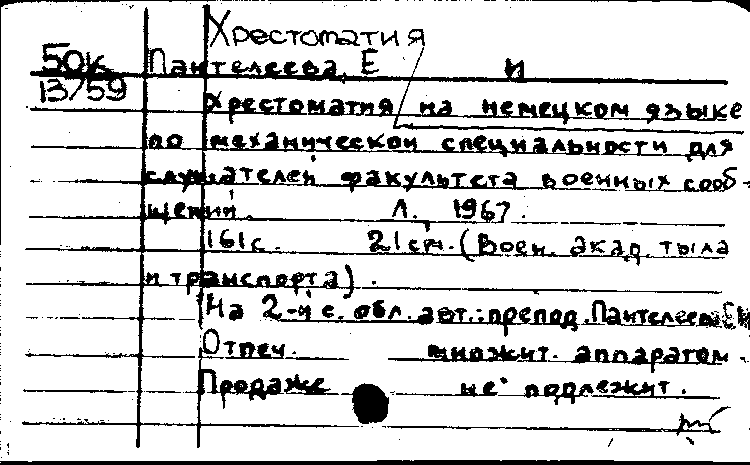 Хрестоматия
50к Пантелеева, Е И
13/59 Хрестоматия на немецком языке
по механической специальности для
слушателей факультета военных сооб-
щений. Л., 1967.
161с. 21см. (Воен. акад. тыла
и транспорта).
На 2-й с. обл. авт.: препод. Пантелеева Е И
Отпеч. множит. аппаратом.
Продаже не подлежит.